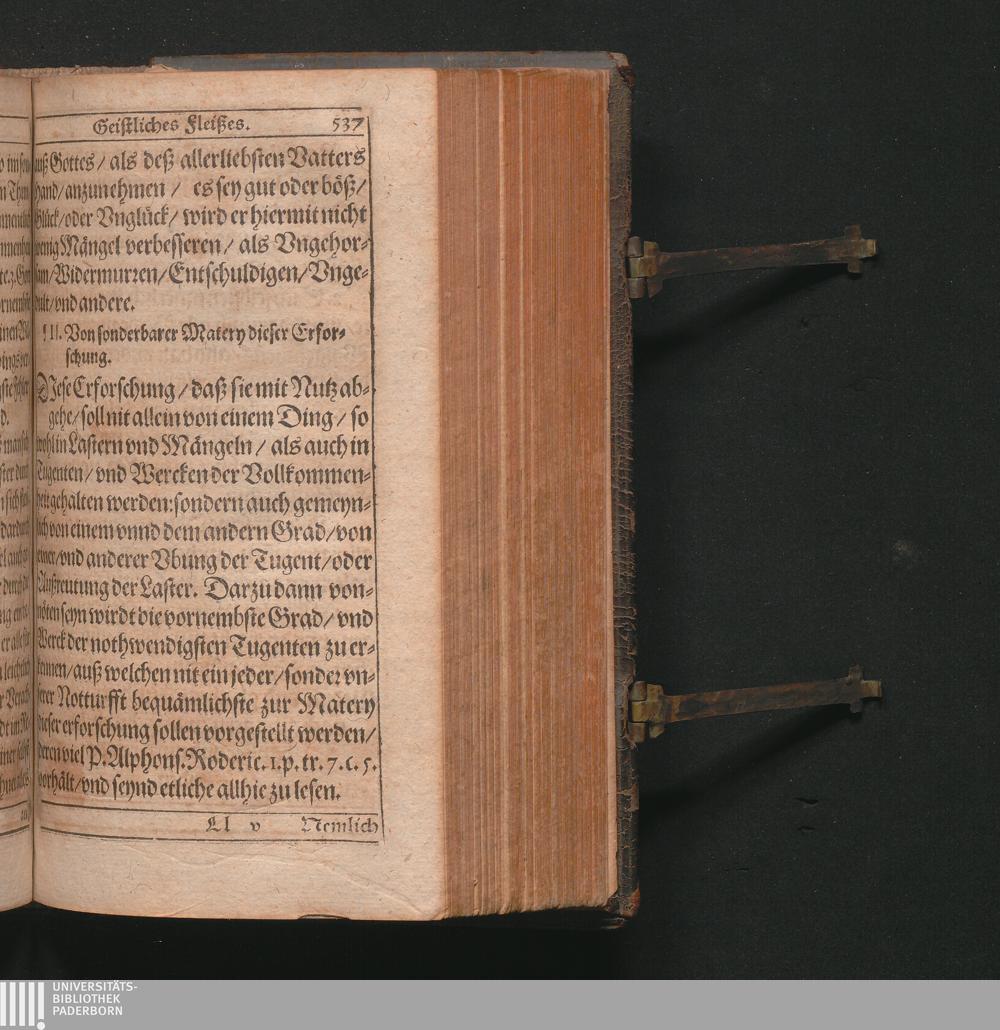 Geistliches Fleißes. 537
auß Gottes / als deß allerliebsten Vatters
Hand / anzunehmen / es sey gut oder böß /
Glück / oder Vnglück / wird er hiermit nicht
wenig Mängel verbesseren / als Vngehor-
sam / Widermurren / Entschuldigen / Vnge-
dult / vnd andere.
§ II. Von sonderbarer Matery dieser Erfor-
schung.
DIese Erforschung / daß sie mit Nutz ab-
gehe / soll nit allein von einem Ding / so
wohl in Lastern vnd Mängeln / als auch in
Tugenten / vnd Wercken der Vollkommen-
heit gehalten werden: sondern auch gemeyn-
lich von einem vnnd dem andern Grad / von
einer / vnd anderer Vbung der Tugent / oder
Außreutung der Laster. Darzu dann von-
nöten seyn wirdt die vornembste Grad / vnd
Werck der nothwendigsten Tugenten zu er-
kennen / auß welchen nit ein jeder / sonder vn-
serer Notturfft bequämlichste zur Matery
dieser erforschung sollen vorgestellt werden /
deren viel P. Alphons. Roderic. 1. p. tr. 7. c. 5.
vorhält / vnd seynd etliche allhie zu lesen.
Ll v Nemlich
UNIVERSITÄTS-
BIBLIOTHEK
PADERBORN